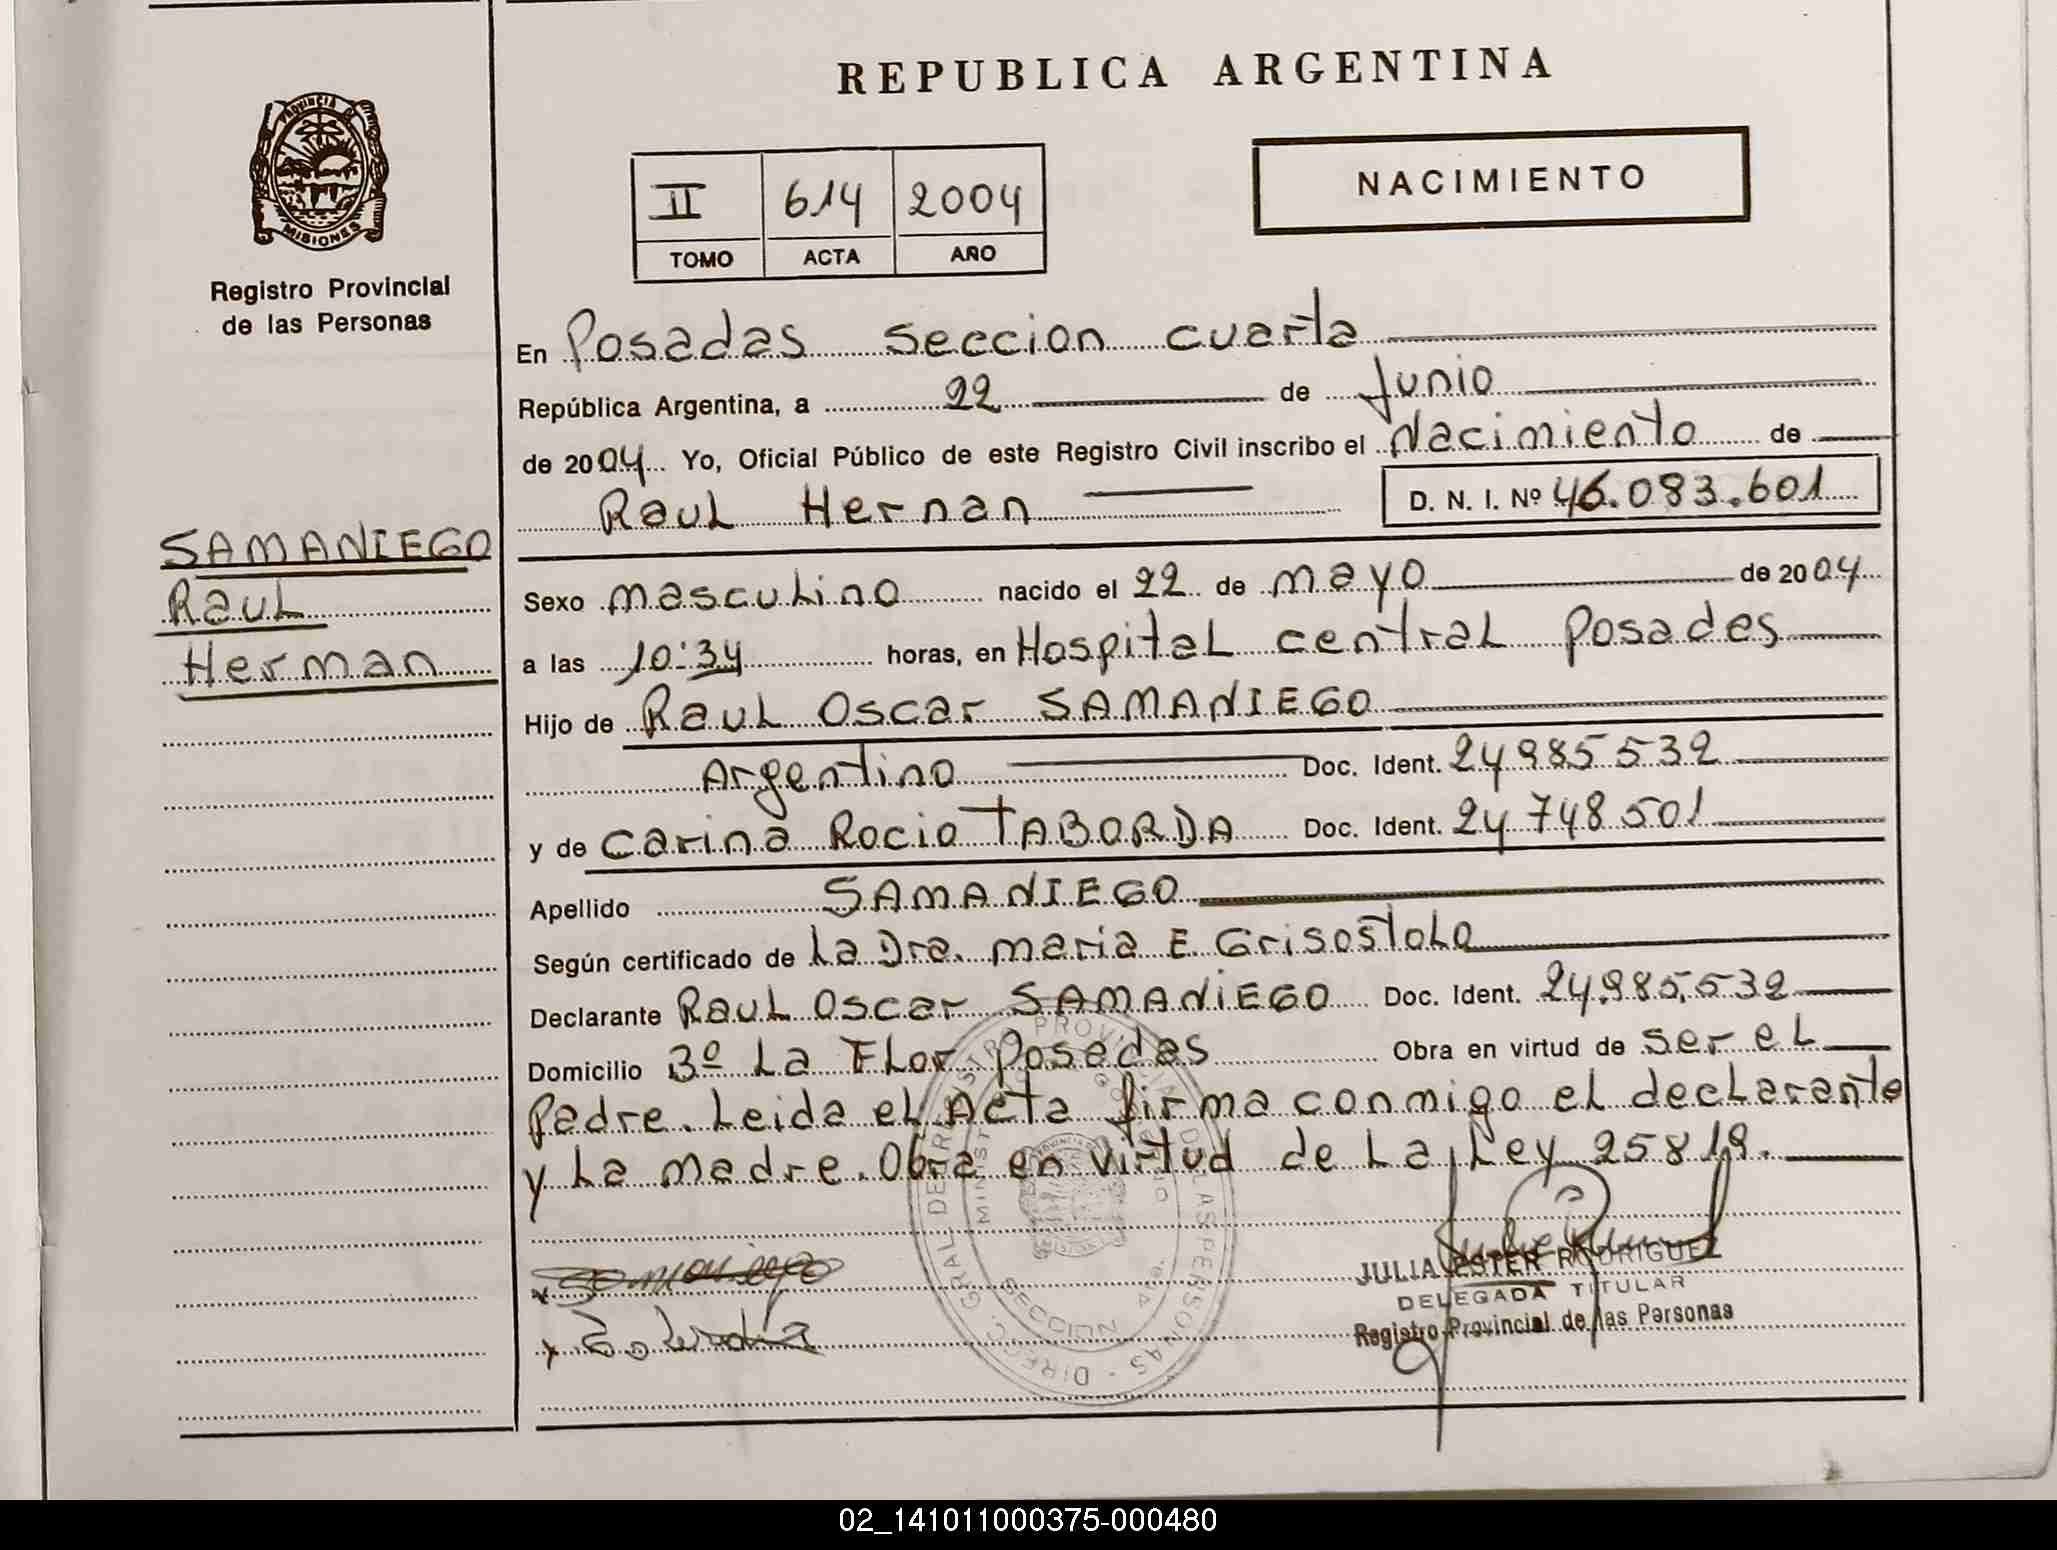 REPUBLICA ARGENTINA
PROVINCIA DE
MISIONES
Registro Provincial
de las Personas
II 614 2004
TOMO ACTA AÑO
NACIMIENTO
SAMANIEGO
Raul
Herman
En Posadas seccion cuarta
República Argentina, a 22 de Junio
de 2004 Yo, Oficial Público de este Registro Civil inscribo el Nacimiento de
Raul Hernan D. N. I. Nº 46.083.601
Sexo masculino nacido el 22 de mayo de 2004
a las 10:34 horas, en Hospital central Posadas
Hijo de Raul Oscar SAMANIEGO
Argentino Doc. Ident. 24 985 532
y de Carina Rocio TABORDA Doc. Ident. 24 748 501
Apellido SAMANIEGO
Según certificado de La Dra. maria E. Grisostolo
Declarante Raul Oscar SAMANIEGO Doc. Ident. 24.985.532
Domicilio Bº La Flor Posadas Obra en virtud de ser el
Padre. Leida el Acta firma conmigo el declarante
y La madre. Obra en virtud de La Ley 25819.
JULIA ESTER RODRIGUEZ
DELEGADA TITULAR
Registro Provincial de las Personas
02_141011000375-000480